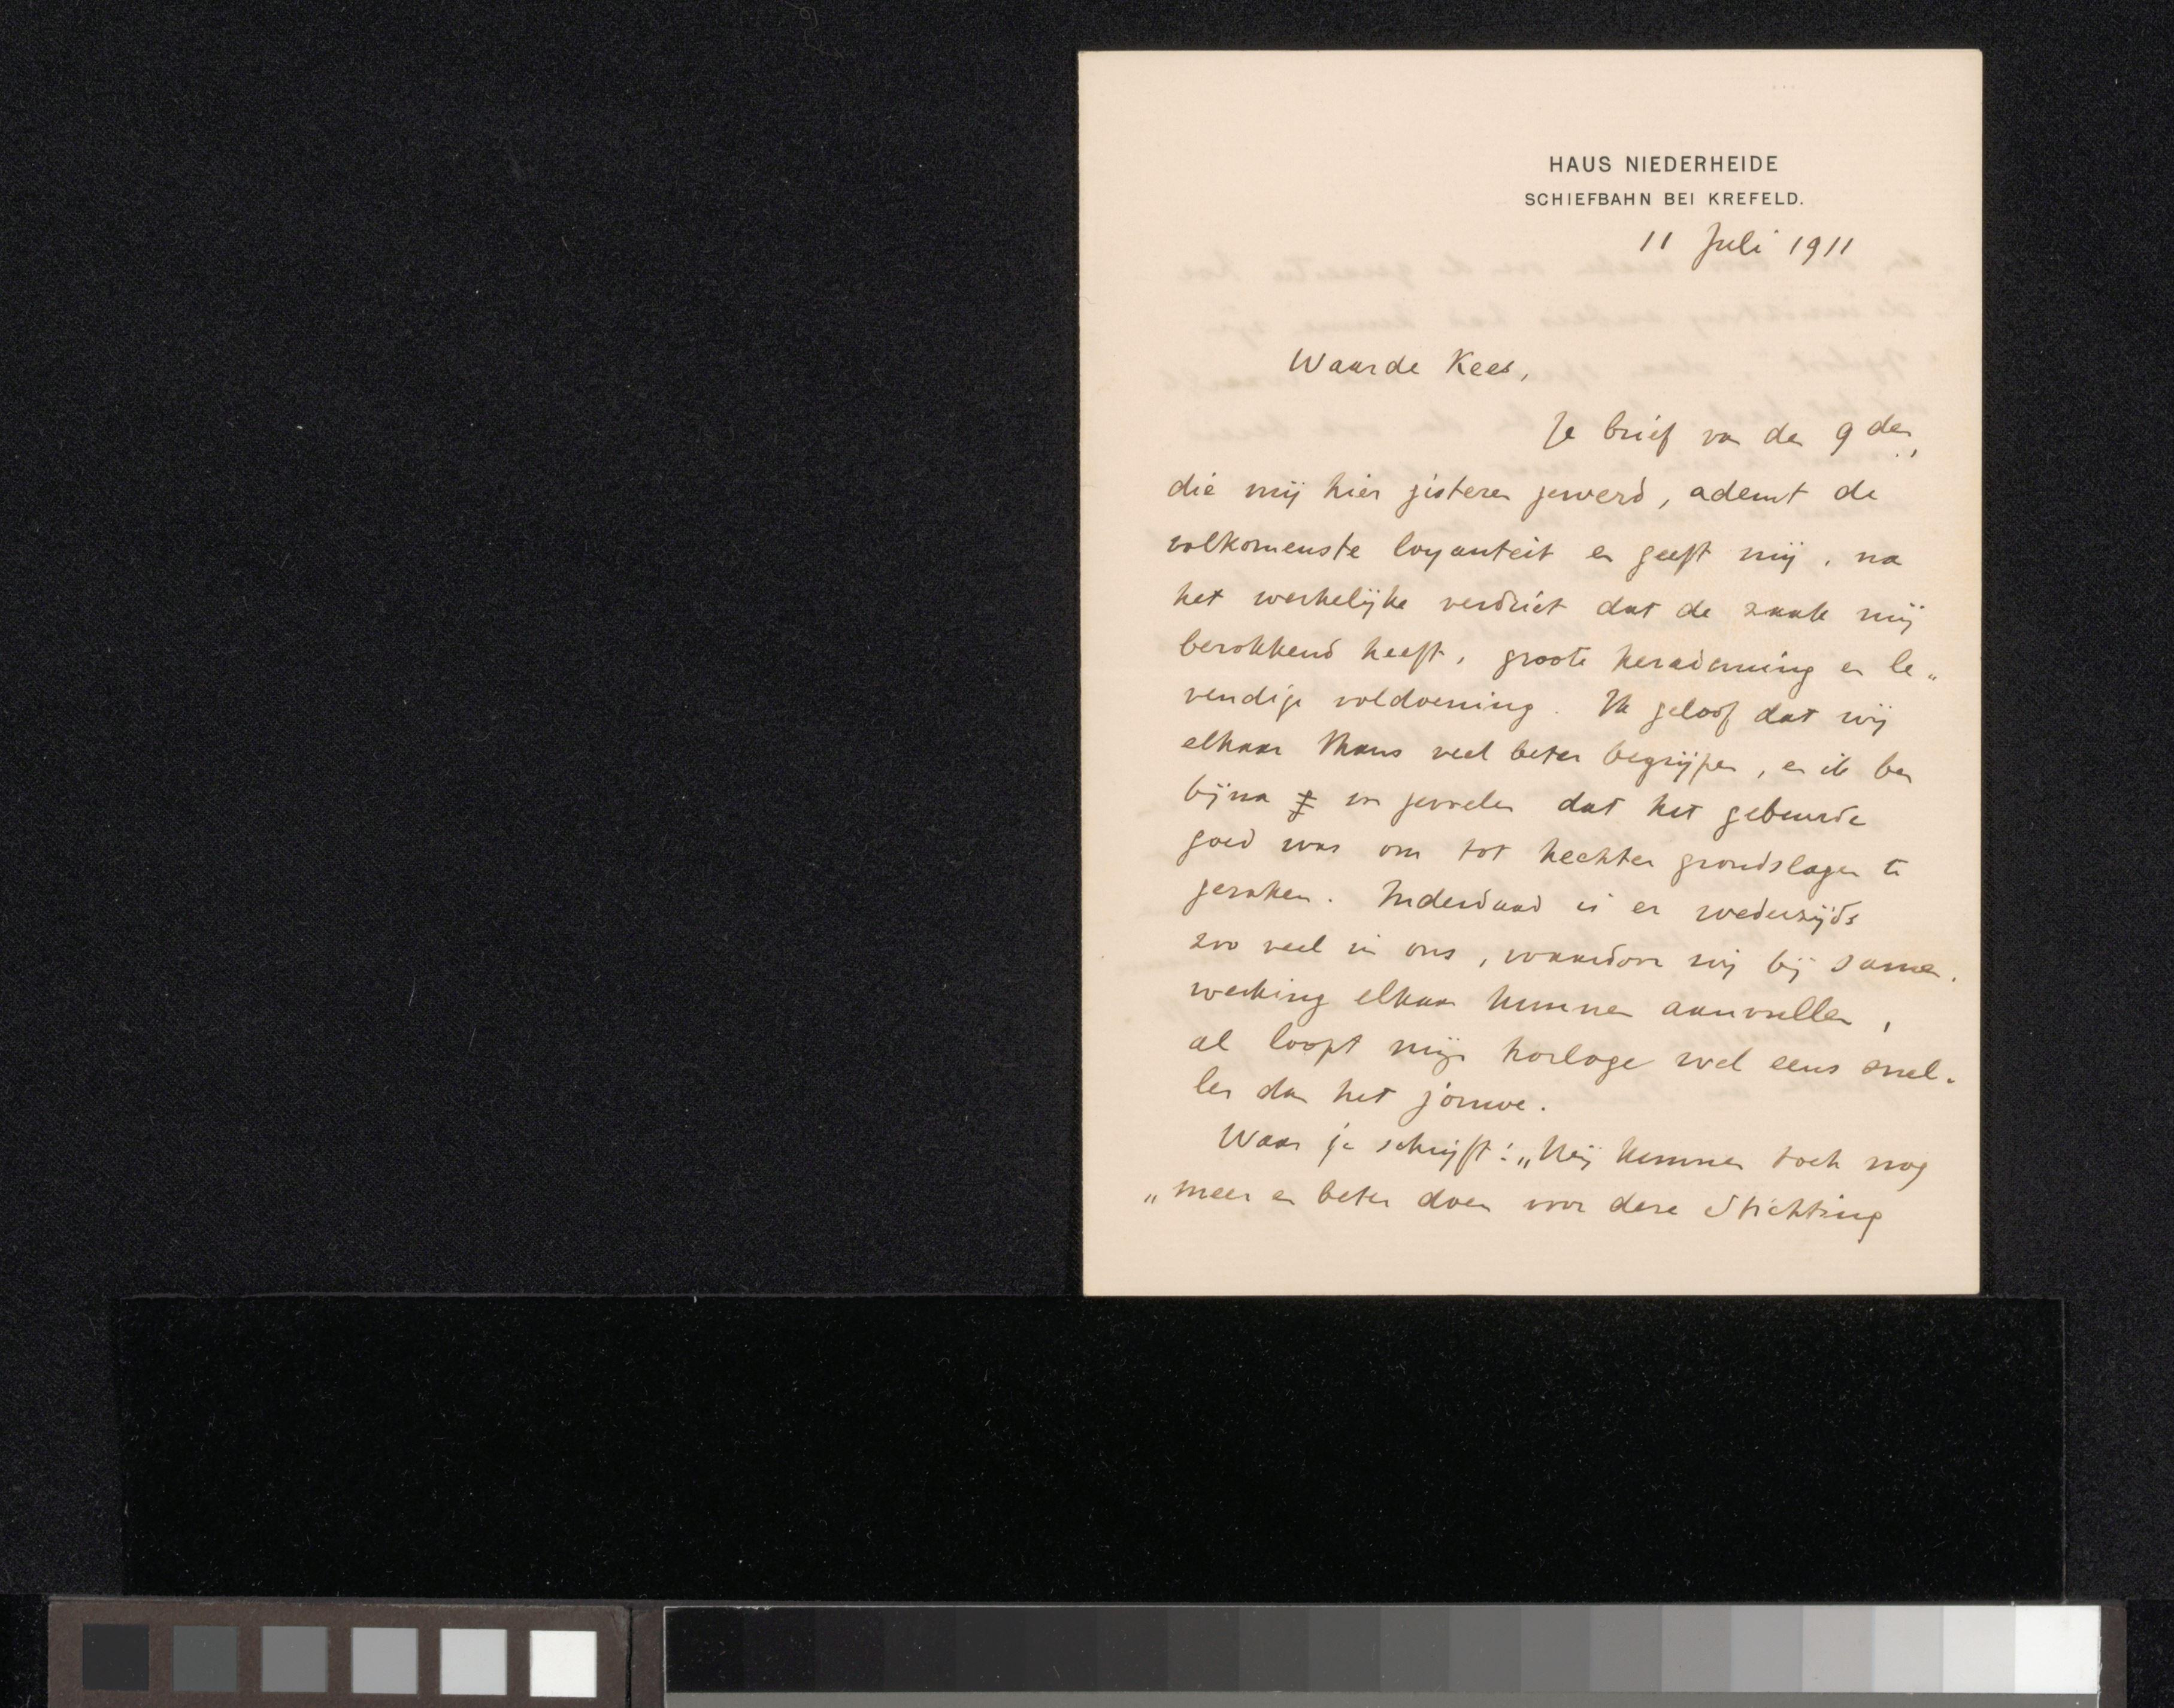 HAUS NIEDERHEIDE
SCHIEFBAHN BEI KREFELD.
11 Juli 1911
Waarde Kees,
Je brief van den 9den,
die mij hier gisteren gewerd, ademt de
volkomenste loyauteit en geeft mij, na
het werkelijke verdriet dat de zaak mij
berokkend heeft, groote herademing en le„
vendige voldoening. Ik geloof dat wij
elkaar thans veel beter begrijpen, en ik ben
bijna van gevoelen dat het gebeurde
goed was om tot hechter grondslagen te
geraken. Inderdaad is er wederzijds
zoo veel in ons, waardoor wij bij samen-
werking elkaar kunnen aanvullen,
al loopt mijn horloge wel eens snel-
ler dan het jouwe.
Waar je schrijft: „Wij kunnen toch nog
„meer en beter doen voor deze Stichting